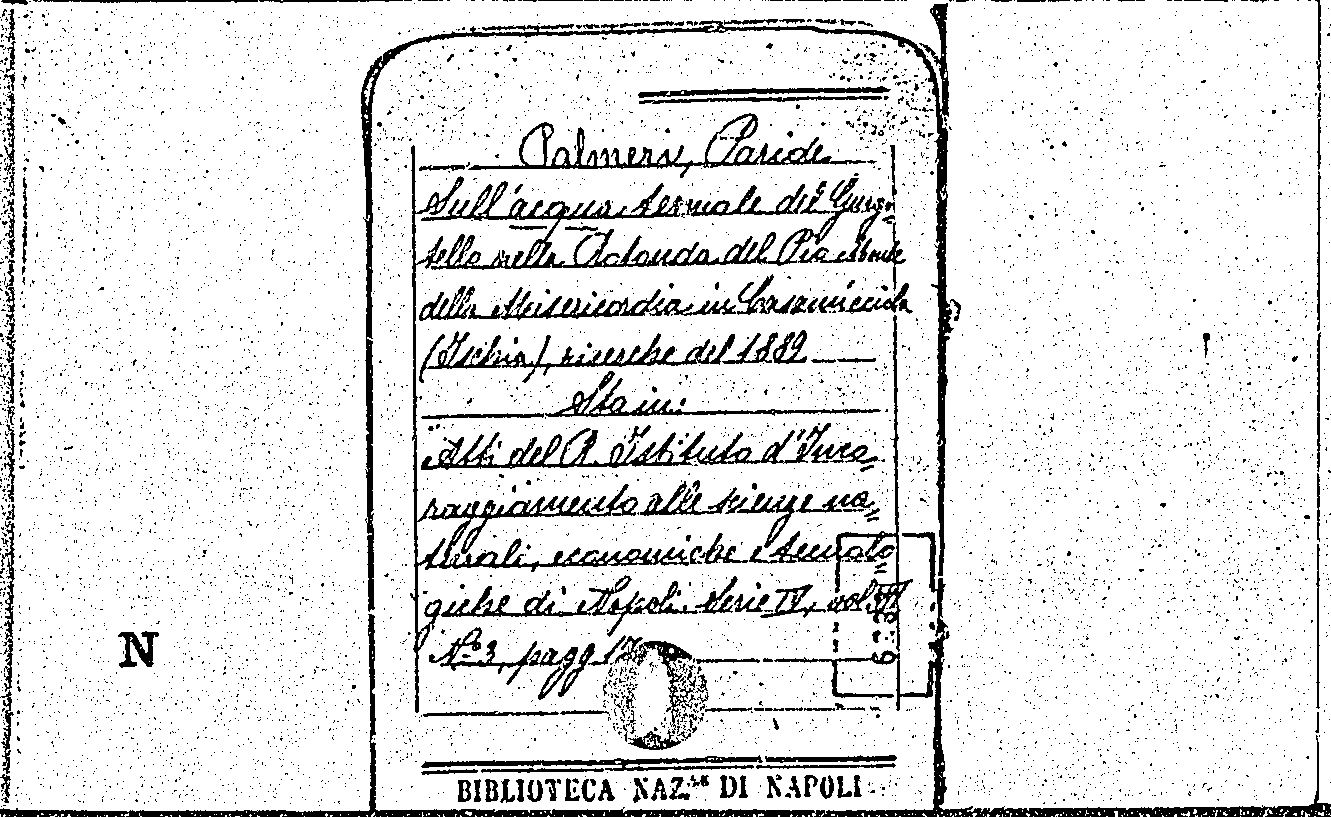 Palmeri, Paride
Sull'acqua termale del Gurgi=
tello nella Rotonda del Pio Monte
della Misericordia in Casamicciola
(Ischia), ricerche del 1889
Sta in:
Atti del R. Istituto d'Inco=
raggiamento alle scienze na=
turali, economiche e tecnolo=
giche di Napoli. Serie IV, vol.
Nº 3, pagg. 17
N
BIBLIOTECA NAZ.le DI NAPOLI